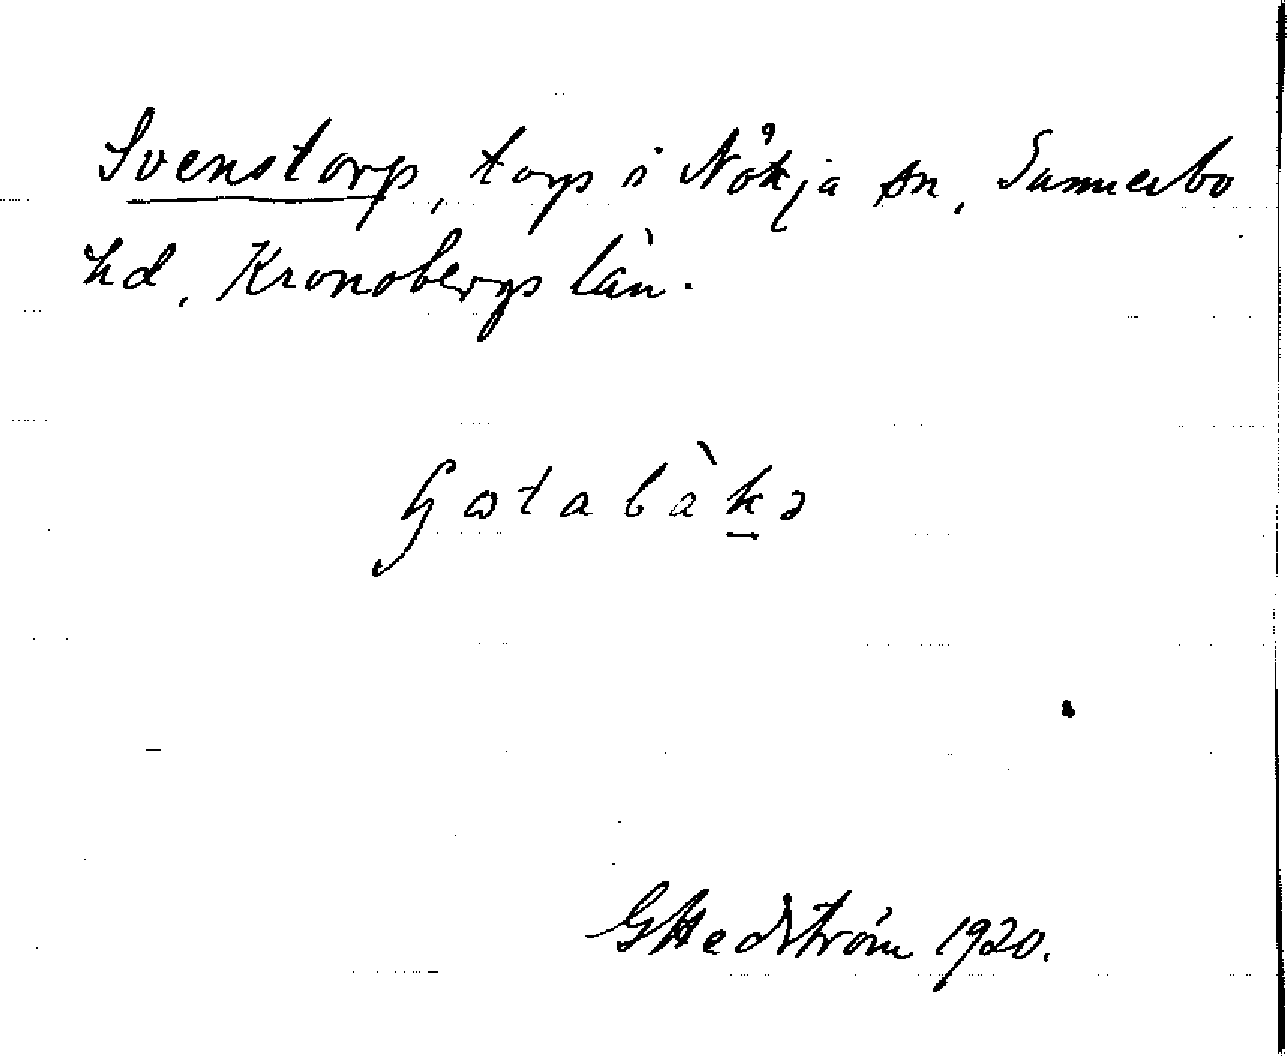 Svenstorp, torp i Nöttja sn, Sunnerbo
hd, Kronobergs län.
Gotabàkə
GHedström 1920.